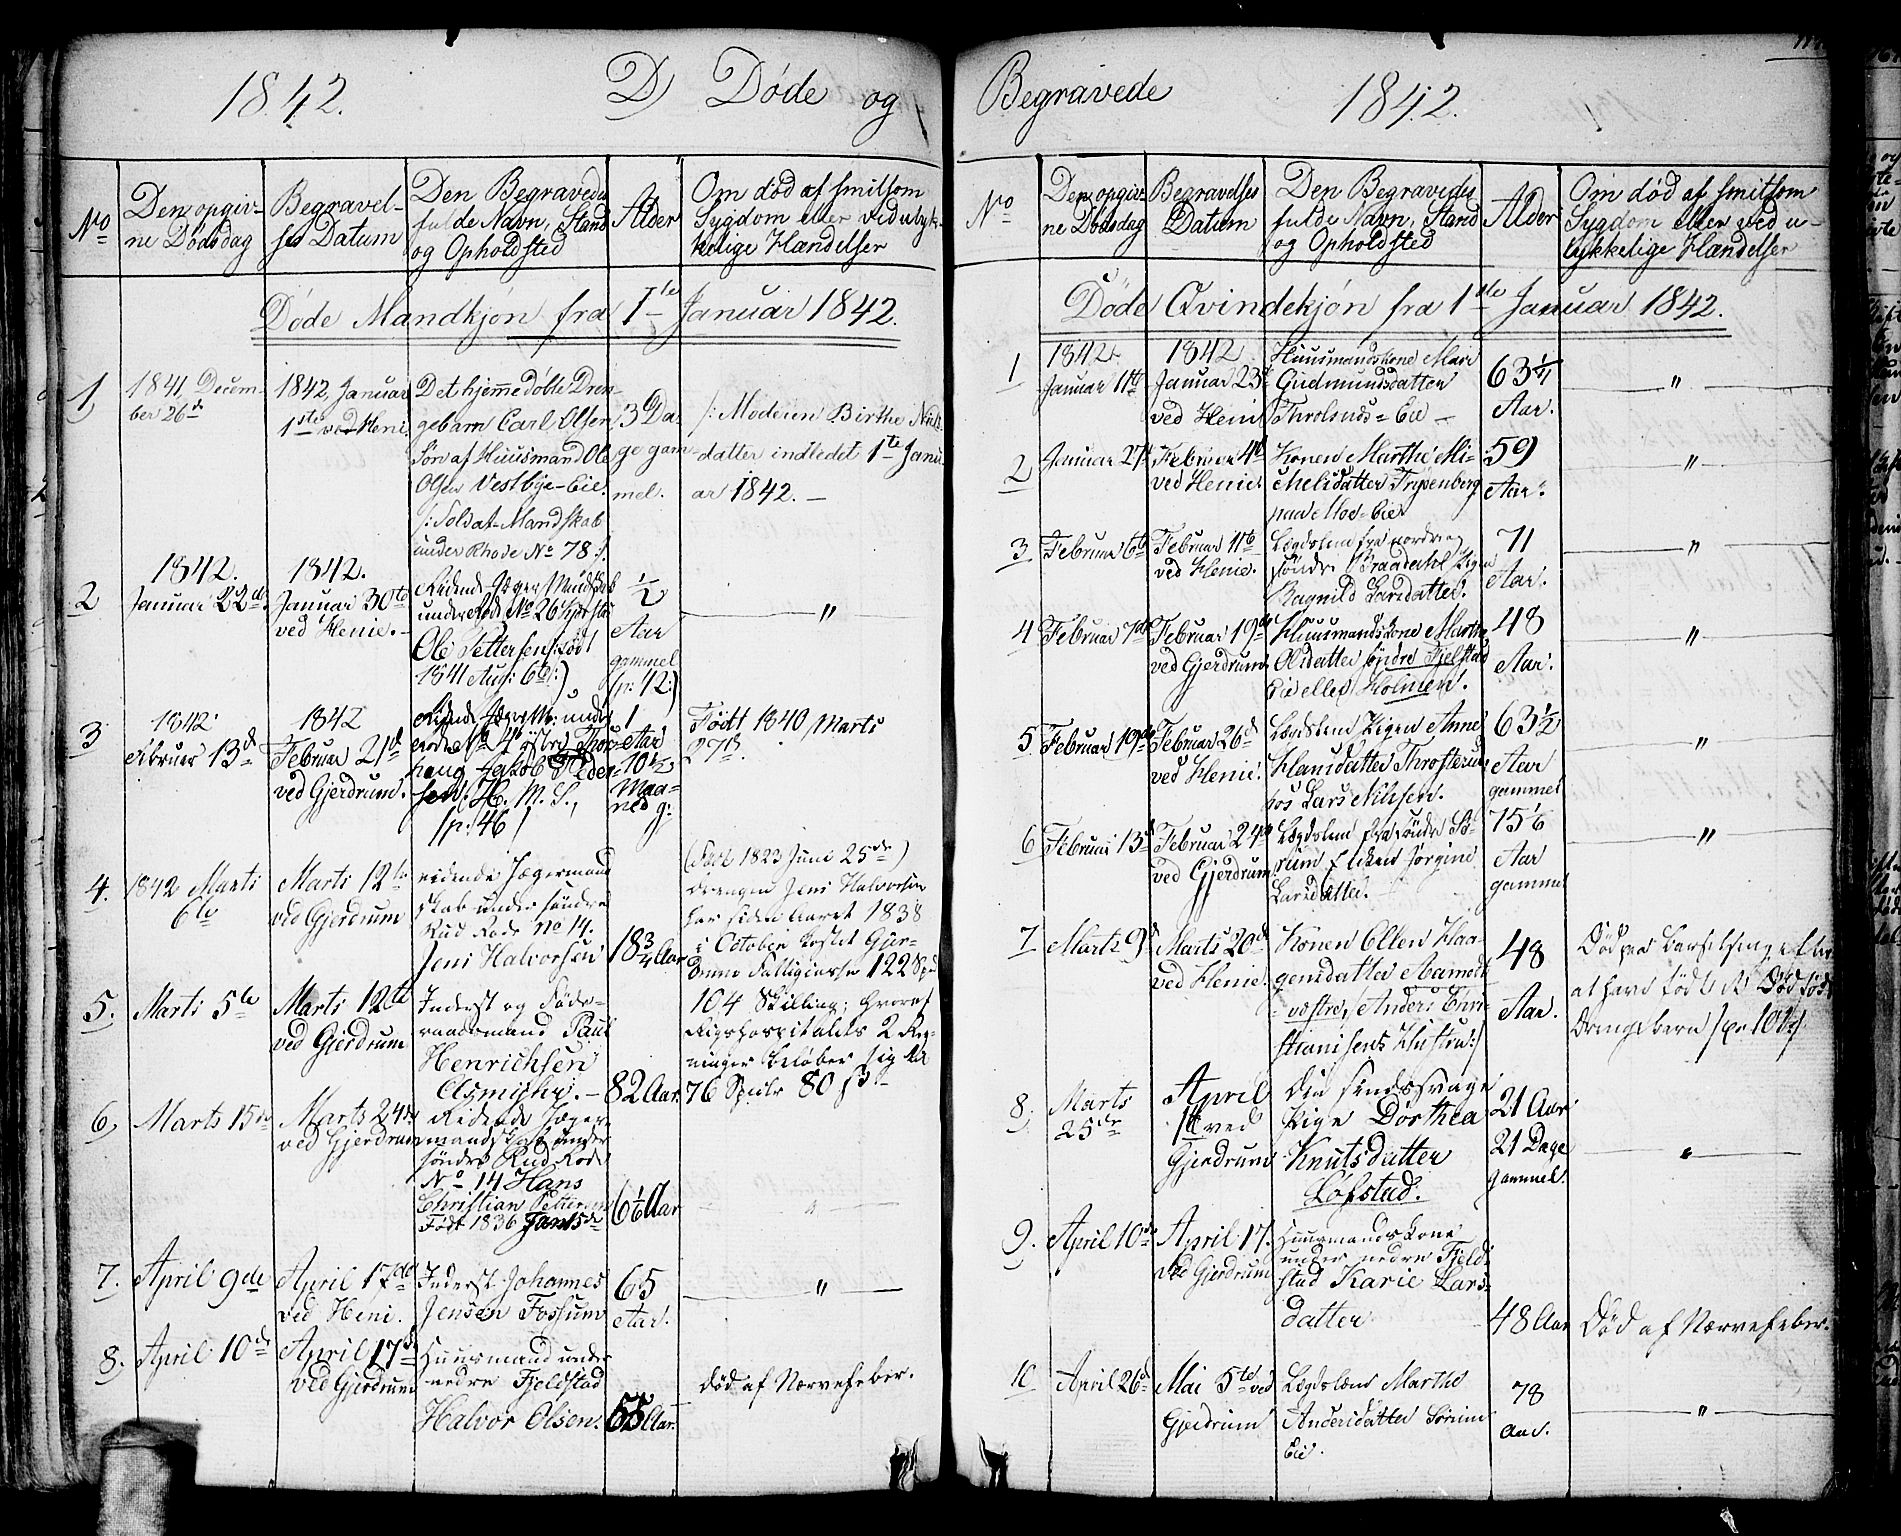 1842. D) Døde og
No
Den opgiv-
ne Dødsdag
Begravel-
ses Datum
Den Begravedes
fulde Navn, Stand
og Opholdsted
Alder
Om død af smitsom
Sygdom eller ved ulyk-
kelige Hændelser
Døde Mandkjøn fra 1te Januar 1842.
1
1841, Decem-
ber 26de
1842, Januar
1ste ved Heni.
Det hjemme døbte Dren-
gebarn Carl Olsen
Søn af Huusmand Ole
Olsen Vestbye-Eie.
/: Soldat-Mandskab
under Rhode No 78 :/.
3 Da-
ge gam-
mel.
/: Moderen Birthe Niels-
datter indledet 1te Janu-
ar 1842. –
2
1842.
Januar 22de.
1842.
Januar 30te
ved Henie. –
Ridende Jæger Mandskab
under Rode No 26
Ole Pettersen /: født
1841 Aug: 6te :)
1/2
Aar
gammel
(p: 42:)
"
3
1842
Februar 13de
1842
Februar 21de
ved Gjerdrum.
Ridende Jæger M: under
Rode No 4 østre
Jakob Peder-
sen /: H. M. S.,
/p: 46/
1
Aar
10 1/2
Maa-
ned g:
Født 1840, Marts
27de.
4.
1842 Marts
6te
Marts 12te
ved Gjerdrum
ridende Jægermand
skab under søndre
Rud Rode No 14.
Jens Halvorsen
18 3/4 Aar
(Født 1823 Juni 25de)
Drengen Jens Halvorsen
har siden Aaret 1838
i October kostet Gjer-
drums Fattigcasse 122 Spd
104 Skilling; hvoraf
Rigshospitalets 2 Reg-
ninger beløber sig til
76 Spdlr 80 s
5.
Marts 5te
Marts 12te
ved Gjerdrum
Inderst og Føde-
raadsmand Paul
Henrichsen
82 Aar.
6,
Marts 15de
Marts 24de
ved Gjerdrum
Ridende Jæger
mandskab under
søndre Rud Rode
No 14 Hans
Christian Petersen
Født 1836 Jan 15de
6 1/6 Aar
"
7.
April 9de
April 17de
ved Heni.
Inderst Johannes
Jensen Fossum
65
Aar.
"
8.
April 10de
April 17de
ved Gjerdrum
Huusmand under
nedre Fjeldstad
Halvor Olsen.
55 Aar.
død af Nervefeber.
Begravede 1842.
No
Den opgiv-
ne Dødsdag
Begravelses
Datum
Den Begravedes
fulde Navn, Stand
og Opholdsted
Alder
Om død af smitsom
Sygdom eller ved u-
lykkelige Hændelser
Døde Qvindekjøn fra 1ste Januar 1842.
1
1842.
Januar 11te
1842
Januar 23de
ved Heni
Huusmandskone Mari
Gudmundsdatter
Throlsruds-Eie –
63 1/4
Aar.
"
2
Januar 27de
Februar 4de
ved Henie.
Konen Marthe Mi-
chelsdatter
paa Moe-Eie
59
Aar.
"
3
Februar 6te
Februar 11te
ved Henie.
Lægdslem fra nordre og
søndre Braadahl Pigen
Ragnild Larsdatter.
71
Aar.
"
4
Februar 7de
Februar 19de
ved Gjerdrum
Huusmandskone Marthe
Olsdatter søndre Fjelstad
Eie eller Holmen.
48
Aar.
"
5
Februar 19de
Februar 26de
ved Henie.
Lægdslem Pigen Anne
Hansdatter Throsterud
hos Lars Nilssen.
63 1/2
Aar
gammel
"
6
Februar 13de
Februar 24de
ved Gjerdrum
Lægdslem fra søndre Sø-
rum Enken Jørgine
Larsdatter.
75 1/6
Aar
gammel
"
7
Marts 9de
Marts 20de
ved Henie.
Konen Ellen Haa-
gensdatter Aamodt
vestre, /Anders Chri-
stiansens Hustru:/
48
Aar.
Død paa Barselseng, efter
at have født et Dødfødt
Drengebarn
8.
Marts
25de
April
1te ved
Gjerdrum
Den sindssvage
Pige Dorthea
Knutsdatter
Løfstad.
21 Aar
21 Dage
gammel.
"
9.
April 10de
April 17.
ved Gjerdrum
Huusmandskone
under nedre Fjeld-
stad Karie Lars-
datter
48 Aar
Død af Nervefeber.
10
April 26de
Mai 5te ved
Gjerdrum
Lægdslem Marthe
Andersdatter Sørum
Eie.
78
Aar.
"